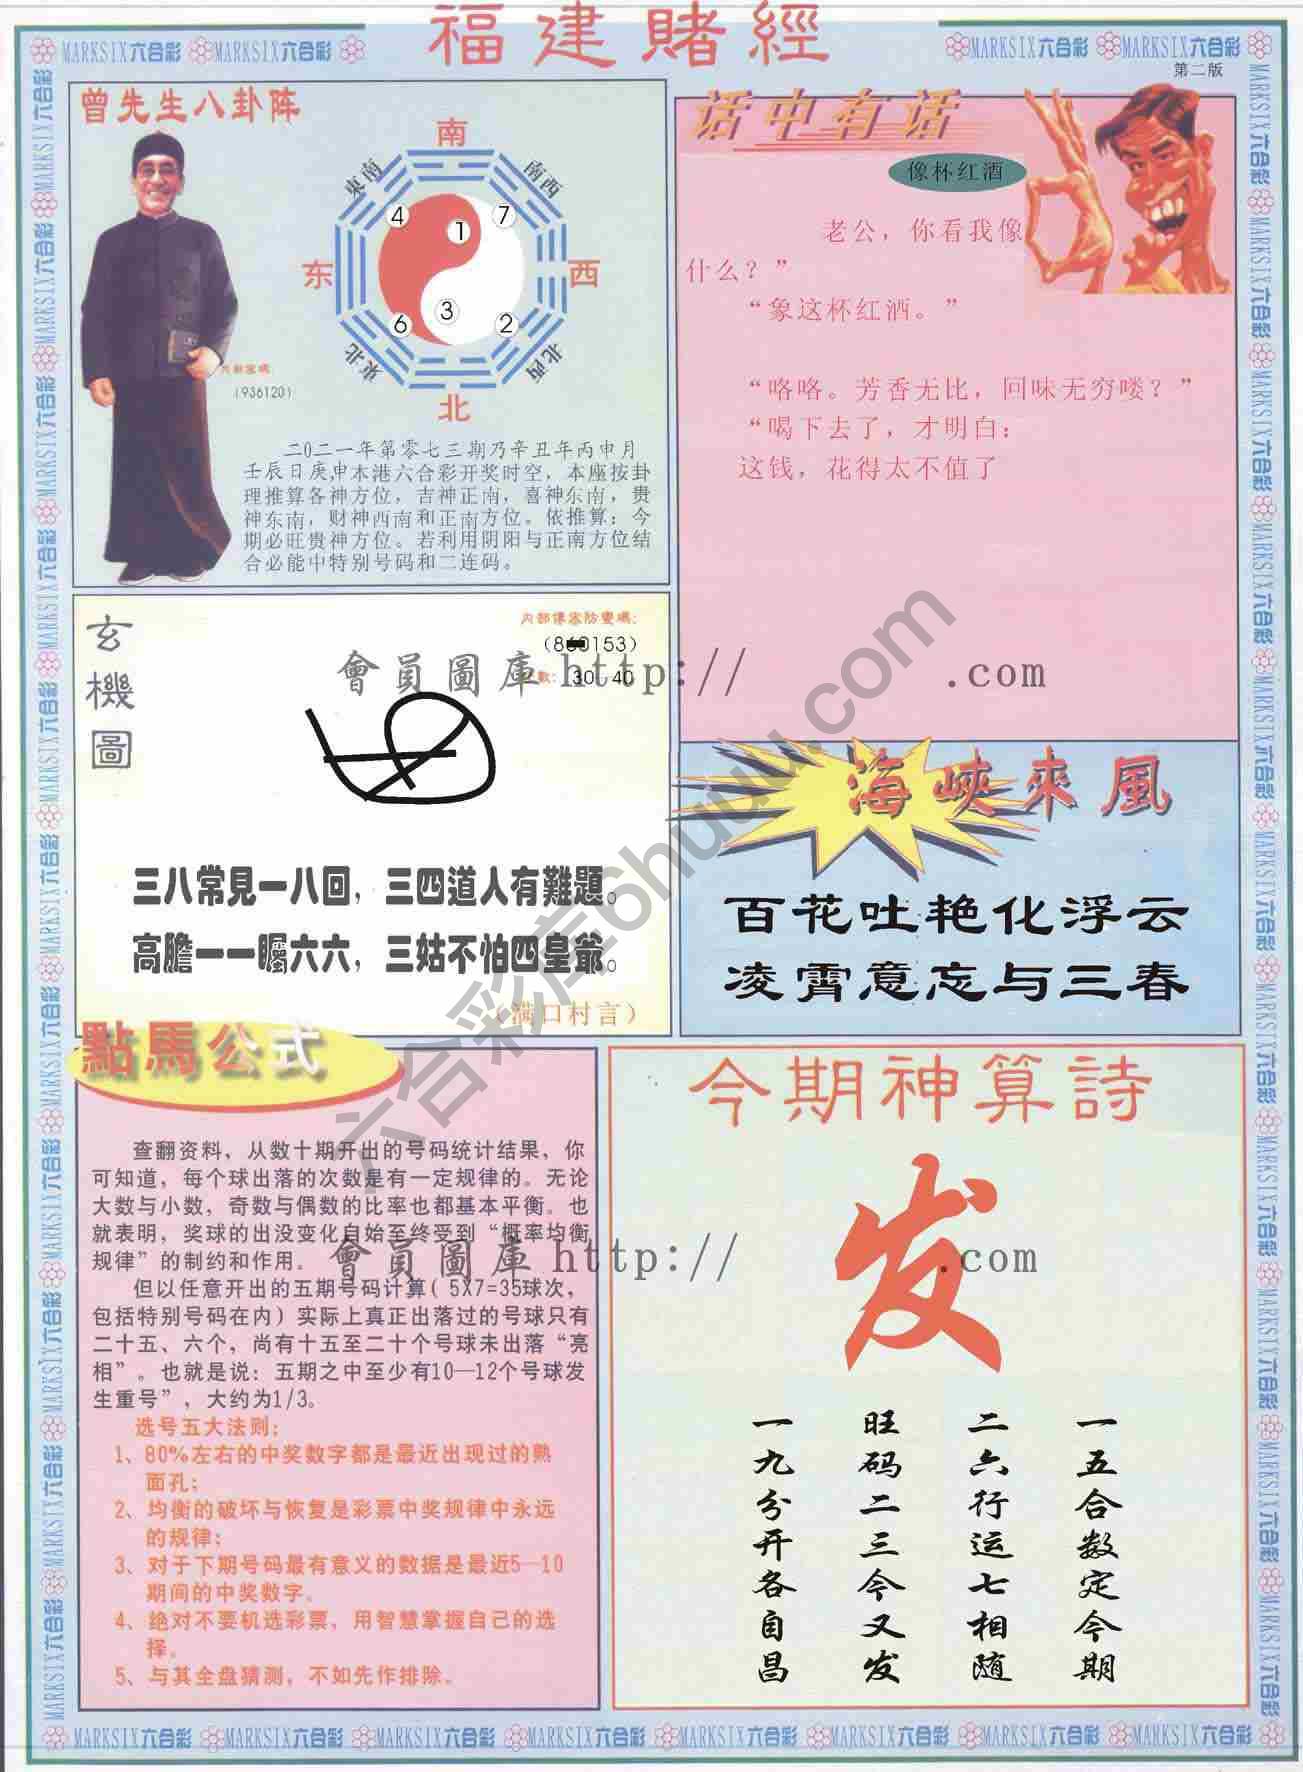 福建賭經
MARKSIX六合彩 MARKSIX六合彩
MARKSIX六合彩 MARKSIX六合彩
第二版
曾先生八卦阵
南
東南
南西
4
1
7
东
西
6
3
2
東北
北西
北
(936120)
二〇二一年第零七三期乃辛丑年丙申月
壬辰日庚申本港六合彩开奖时空，本座按卦
理推算各神方位，吉神正南，喜神东南，贵
神东南，财神西南和正南方位。依推算：今
期必旺贵神方位。若利用阴阳与正南方位结
合必能中特别号码和二连码。
话中有话
像杯红酒
老公，你看我像
什么？”
“象这杯红酒。”
“咯咯。芳香无比，回味无穷喽？”
“喝下去了，才明白：
这钱，花得太不值了
玄機圖
30 40
會員圖庫 http:// .com
三八常見一八回，三四道人有難題。
高膽一一矚六六，三姑不怕四皇爺。
（满口村言）
海峽來風
百花吐艳化浮云
凌霄意忘与三春
六合彩库6huuu.com
點馬公式
查翻资料，从数十期开出的号码统计结果，你
可知道，每个球出落的次数是有一定规律的。无论
大数与小数，奇数与偶数的比率也都基本平衡。也
就表明，奖球的出没变化自始至终受到“概率均衡
规律”的制约和作用。
但以任意开出的五期号码计算( 5X7=35球次，
包括特别号码在内）实际上真正出落过的号球只有
二十五、六个，尚有十五至二十个号球未出落“亮
相”。也就是说：五期之中至少有10—12个号球发
生重号”，大约为1/3。
选号五大法则：
1、80%左右的中奖数字都是最近出现过的熟
面孔；
2、均衡的破坏与恢复是彩票中奖规律中永远
的规律；
3、对于下期号码最有意义的数据是最近5—10
期间的中奖数字。
4、绝对不要机选彩票，用智慧掌握自己的选
择。
5、与其全盘猜测，不如先作排除。
會員圖庫 http:// .com
今期神算詩
发
一五合数定今期
二六行运七相随
旺码二三今又发
一九分开各自昌
MARKSIX六合彩 MARKSIX六合彩 MARKSIX六合彩 MARKSIX六合彩 MARKSIX六合彩 MARKSIX六合彩 MARKSIX六合彩 MARKSIX六合彩